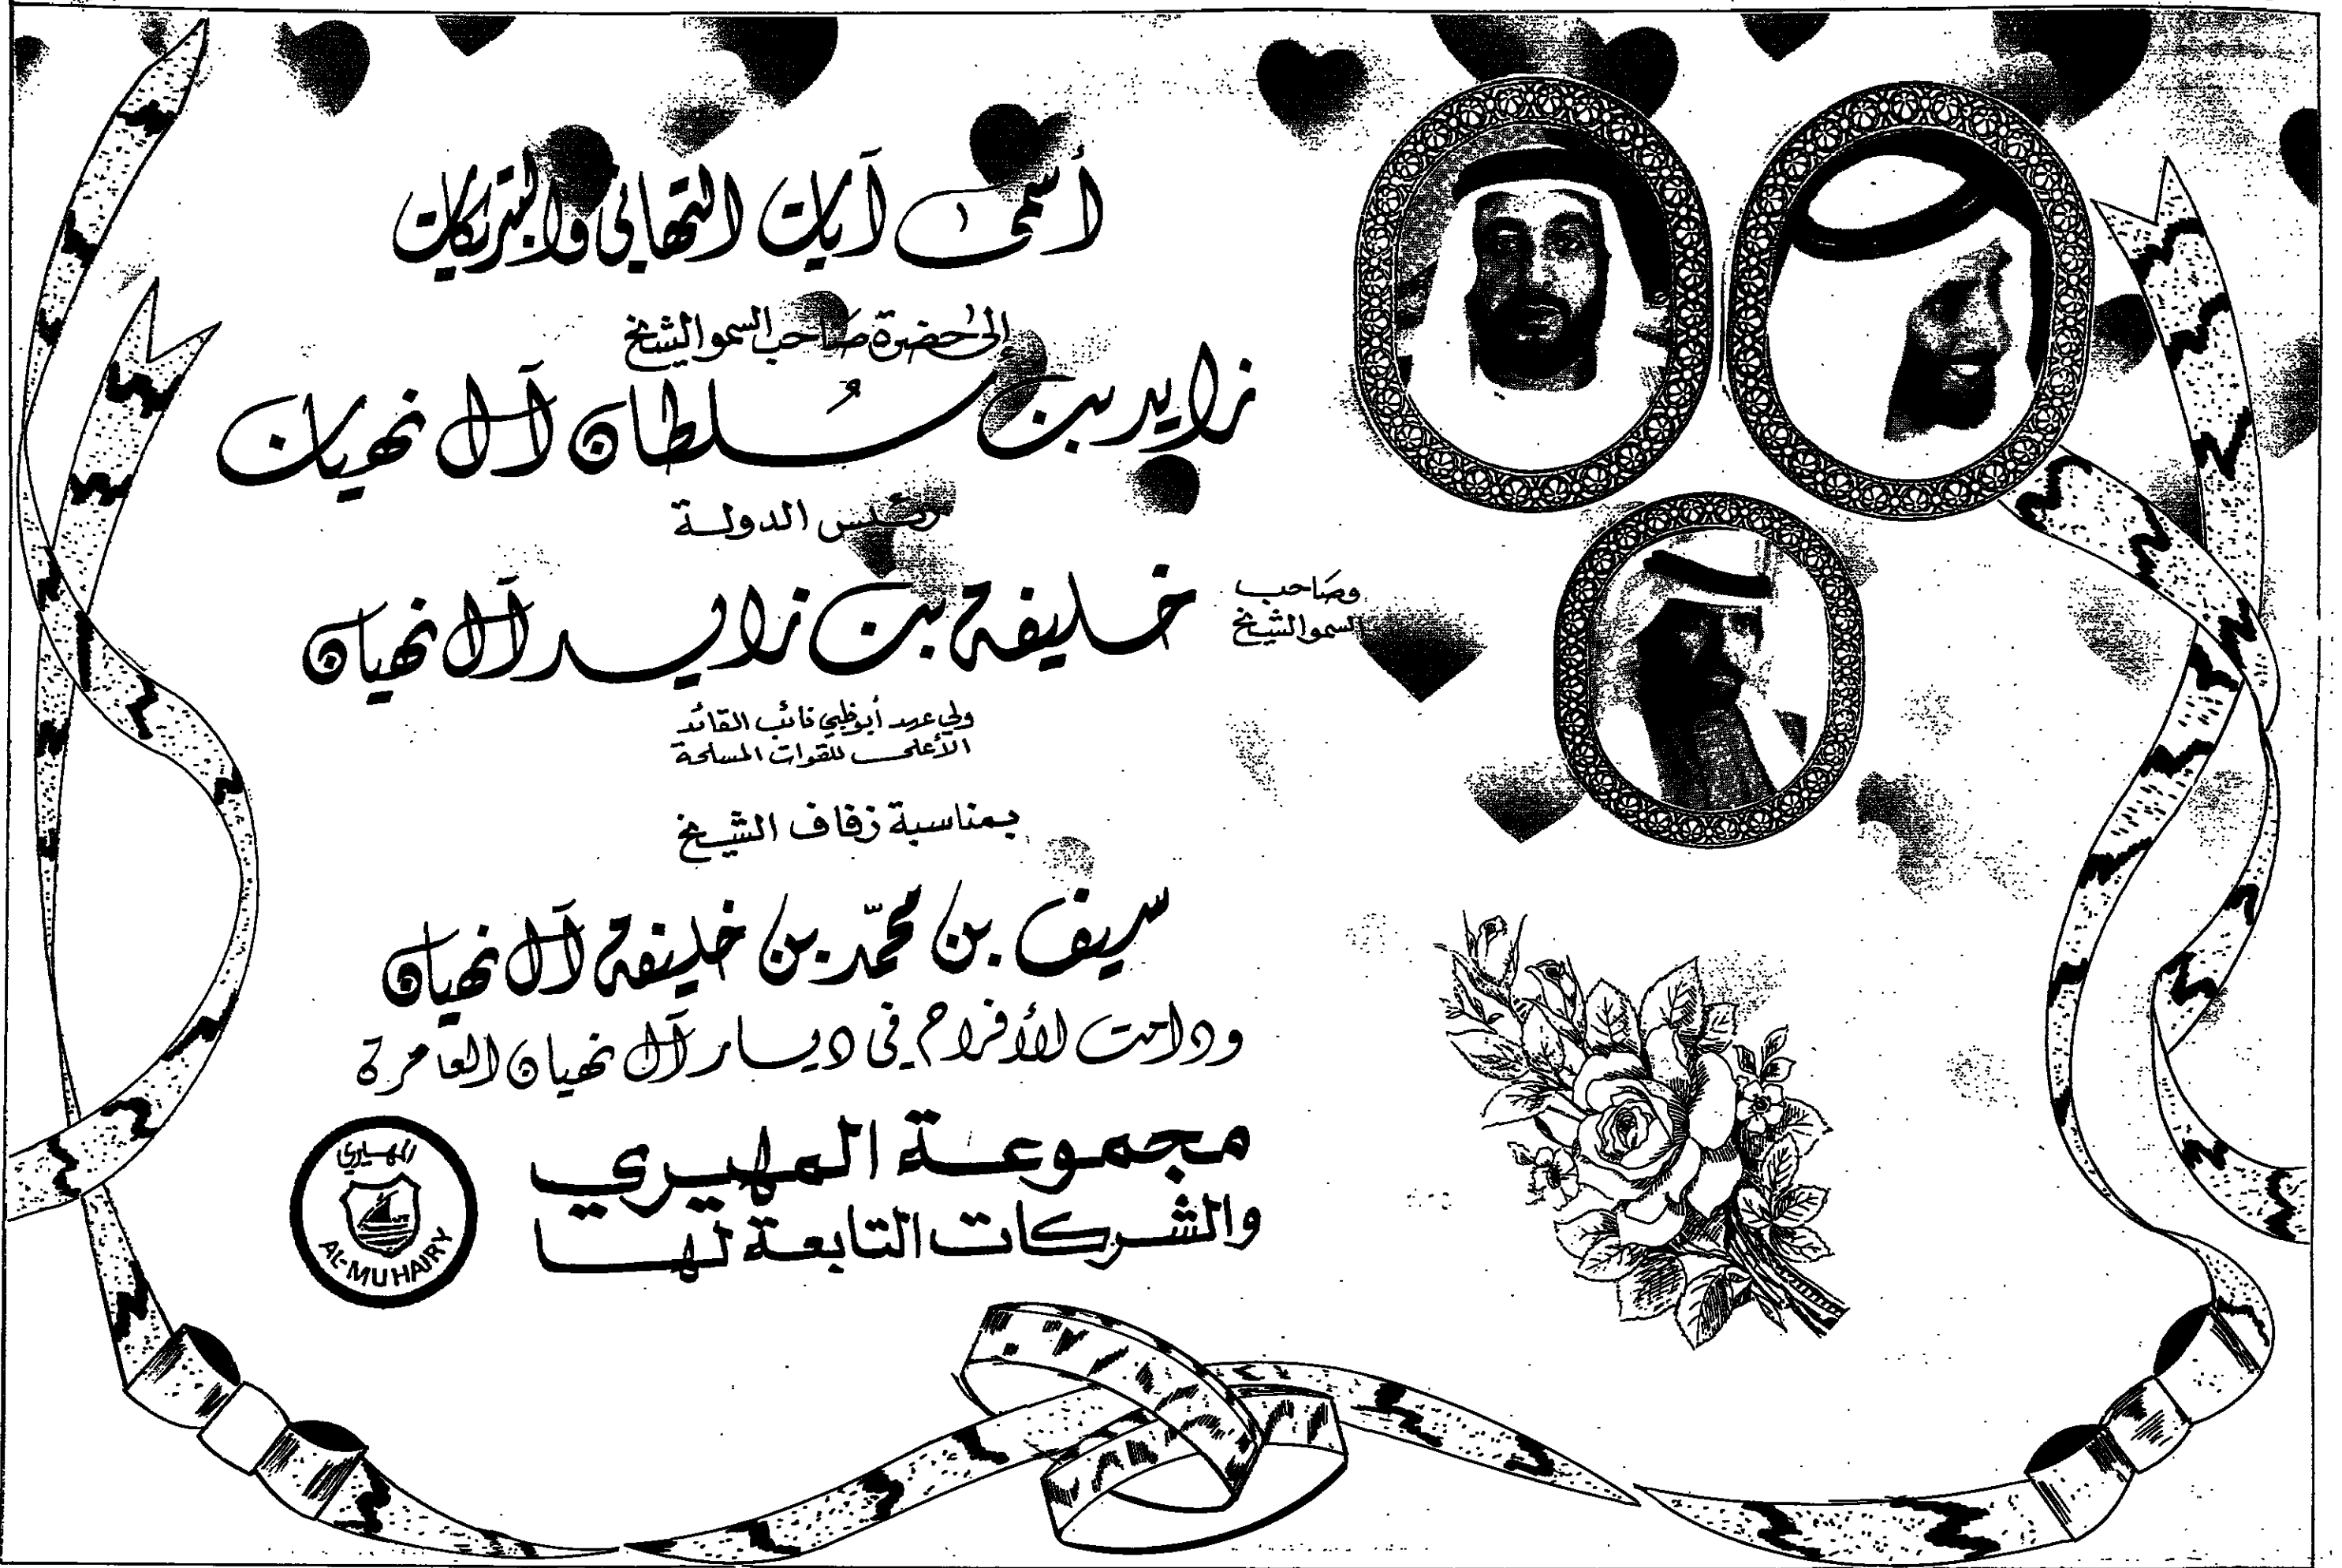 أسمى آيات التهاني والتبريكات
إلى حضرة صاحب السمو الشيخ
زايد بن سلطان آل نهيان
رئيس الدولة
وصاحب السمو الشيخ
خليفة بن زايد آل نهيان
ولي عهد أبوظبي نائب القائد
الأعلى للقوات المسلحة
بمناسبة زفاف الشيخ
سيف بن محمّد بن خليفة آل نهيان
ودامت الأفراح في ديار آل نهيان العامرة
مجموعة المهيري
والشركات التابعة لها
المهيري
AL-MUHAIRY